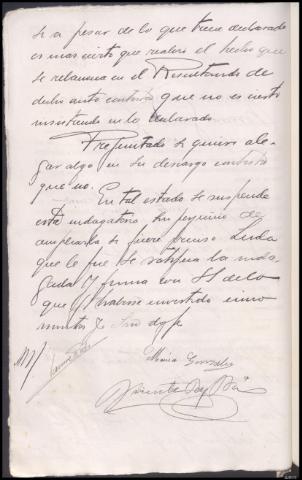 si a pesar de lo que tiene declarado
es mas cierto que realizó el hecho que
se relaciona en el Resultando de
dicho auto contestó que no es cierto
insistiendo en lo declarado
Preguntado si quiere ale-
gar algo en su descargo contestó
que no. En tal estado se suspende
esta indagatoria sin perjuicio de
ampliarla si fuere preciso Leida
que le fue se ratifica la inda-
gada y firma con SS de lo
que y haberse invertido cinco
minutos yo doy fe
Maria Gonzalez